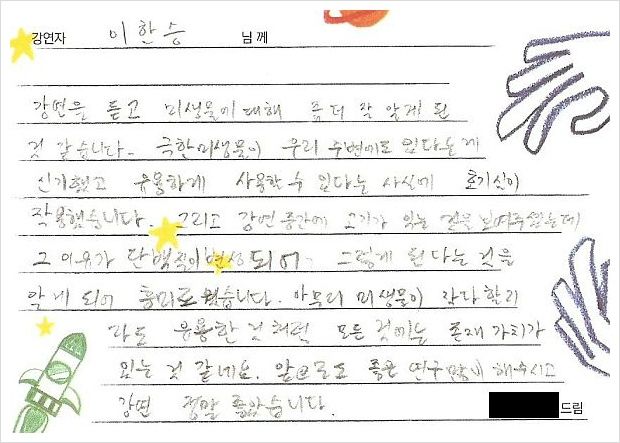 강연자 이한승 님께
강연을 듣고 미생물에 대해 좀 더 잘 알게 된
것 같습니다. 극한미생물이 우리 주변에도 있다는게
신기했고 유용하게 사용할 수 있다는 사실에 호기심이
작용했습니다. 그리고 강연 중간에 고기가 익는 걸을 보여주셨는데
그 이유가 단백질이 변성되어 그렇게 된다는 것을
알게 되어 흥미로웠습니다. 아무리 미생물이 작다할지
라도 유용한 것처럼 모든 것에는 존재가치가
있는 것 같네요. 앞으로도 좋은 연구 많이 해주시고
강연 정말 좋았습니다.
드림